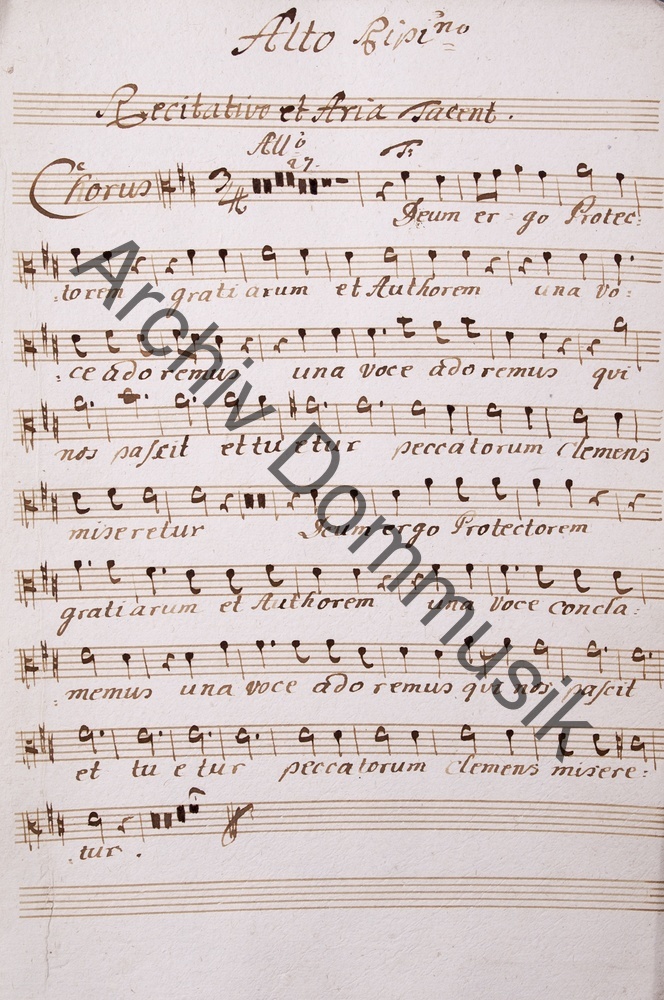 Alto Ripi:no
Recitativo et Aria Tacent.
All:o
27.
Ts
Chorus 3/4
Deum er - go Protec:
:torem gratiarum et Authorem una vo:
:ce adoremus una voce adoremus qui
nos pascit et tuetur peccatorum Clemens
miseretur Deum ergo Protectorem
gratiarum et Authorem una voce concla:
:memus una voce adoremus qui nos pascit
et tuetur peccatorum Clemens misere:
:tur.
Archiv Dommusik